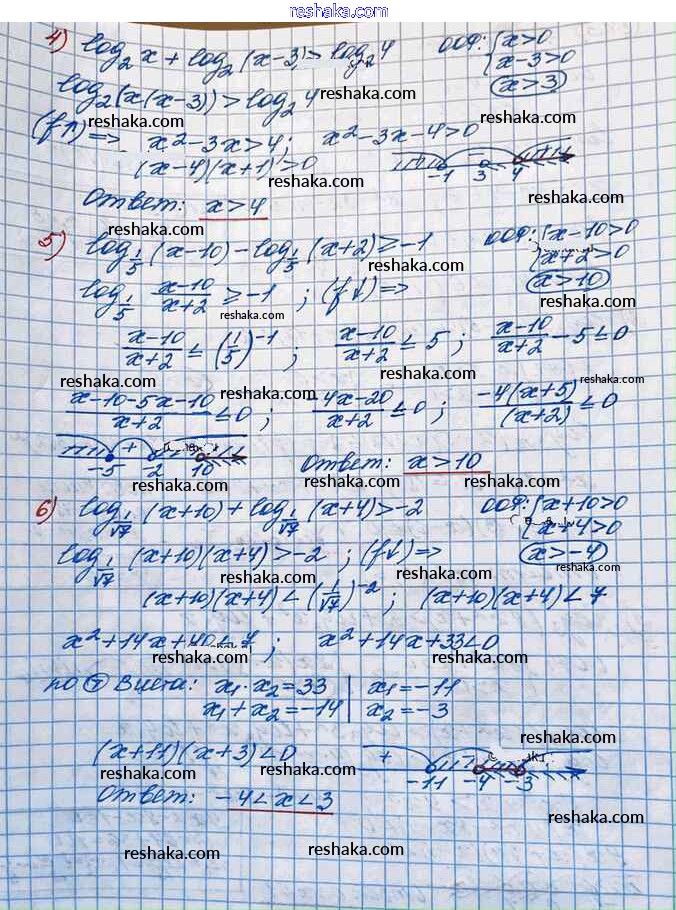 reshaka.com
4) log₂ x + log₂ (x-3) > log₂ 4   ООФ: { x>0
x-3>0
x>3
log₂(x(x-3)) > log₂ 4
reshaka.com
reshaka.com
(f↑) => x²-3x>4; x²-3x-4>0
reshaka.com
(x-4)(x+1)>0   -1 3 4
reshaka.com
reshaka.com
Ответ: x>4
reshaka.com
5) log_{1/5} (x-10) - log_{1/5} (x+2) ≥ -1   ООФ: { x-10>0
x+2>0
x>10
reshaka.com
reshaka.com
log_{1/5} (x-10)/(x+2) ≥ -1 ; (f↓) =>
reshaka.com
reshaka.com
(x-10)/(x+2) ≤ (1/5)⁻¹ ; (x-10)/(x+2) ≤ 5 ; (x-10)/(x+2) - 5 ≤ 0
reshaka.com
reshaka.com
reshaka.com
(x-10-5x-10)/(x+2) ≤ 0 ; (-4x-20)/(x+2) ≤ 0 ; (-4(x+5))/(x+2) ≤ 0
reshaka.com
reshaka.com
+
-5 -2 10
Ответ: x>10
reshaka.com
reshaka.com
reshaka.com
6) log_{1/√7} (x+10) + log_{1/√7} (x+4) > -2   ООФ: { x+10>0
x+4>0
x>-4
reshaka.com
log_{1/√7} (x+10)(x+4) > -2 ; (f↓) =>
reshaka.com
reshaka.com
reshaka.com
(x+10)(x+4) < (1/√7)⁻² ; (x+10)(x+4) < 7
reshaka.com
x²+14x+40<7 ; x²+14x+33<0
reshaka.com
reshaka.com
по Т Виета: x₁·x₂=33 | x₁=-11
x₁+x₂=-14 | x₂=-3
reshaka.com
reshaka.com
reshaka.com
(x+11)(x+3)<0   + -11 -4 -3
reshaka.com
reshaka.com
Ответ: -4<x<3
reshaka.com
reshaka.com
reshaka.com
reshaka.com